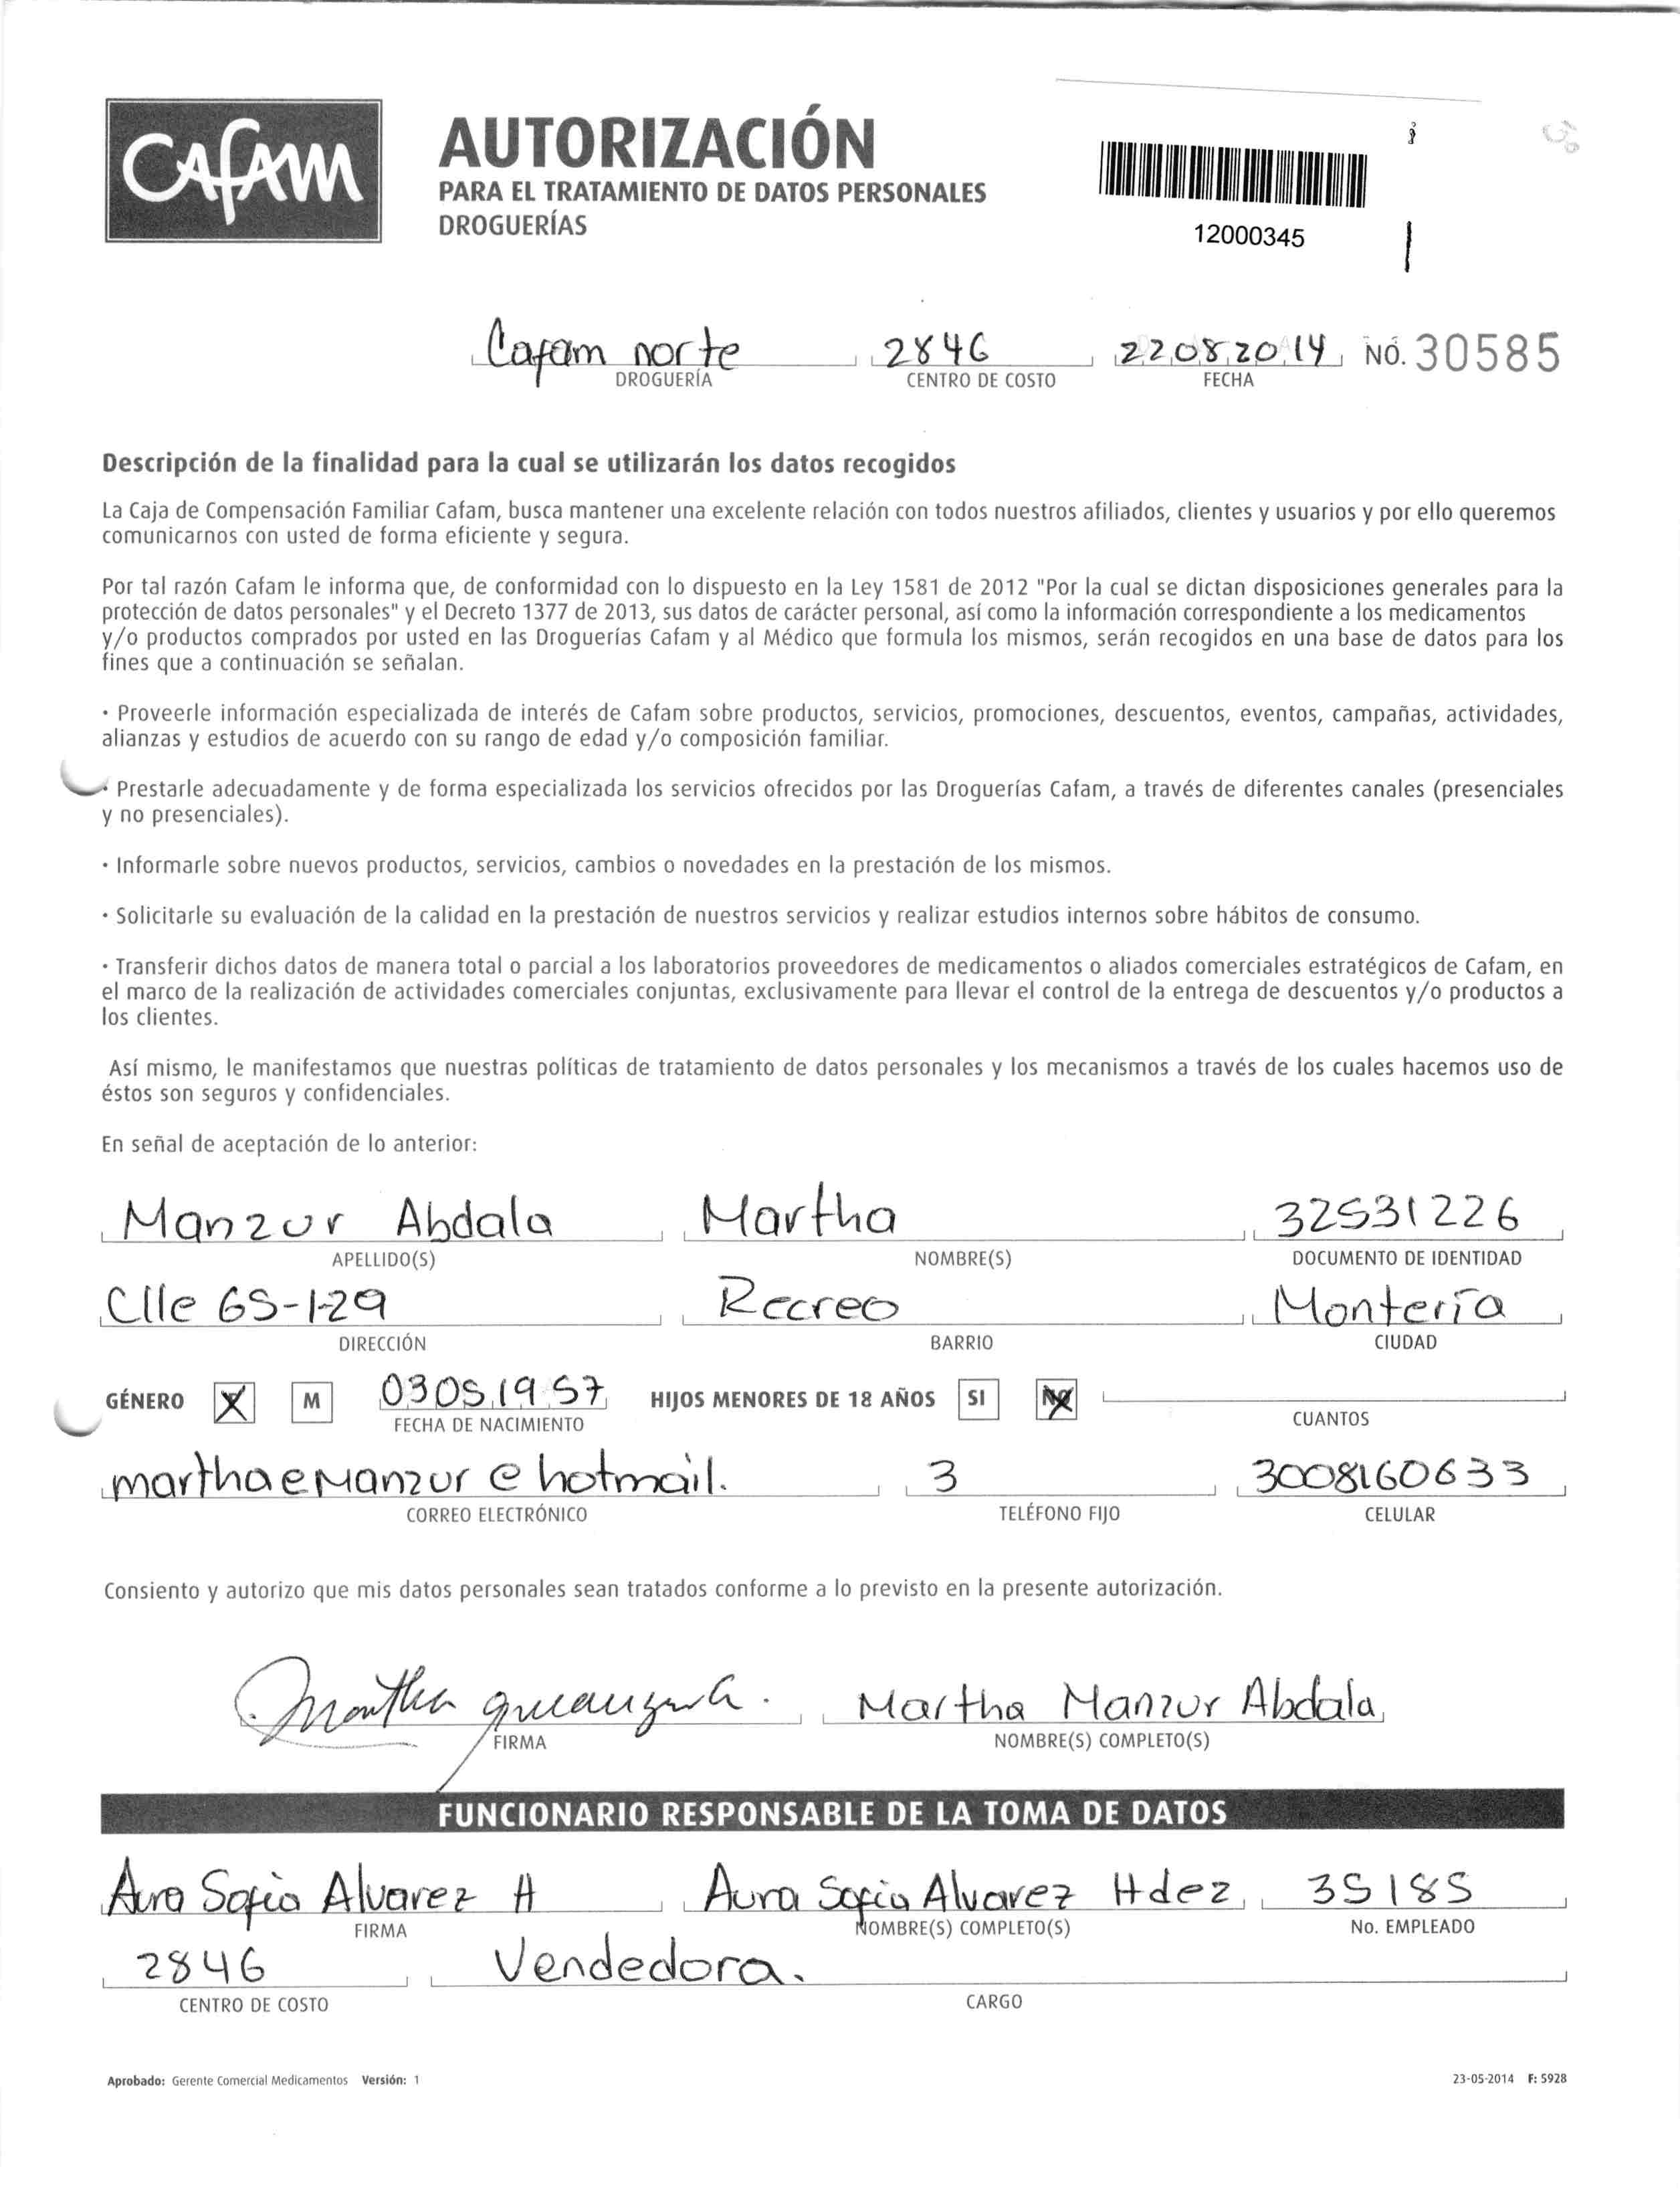 CAFAM
AUTORIZACIÓN
PARA EL TRATAMIENTO DE DATOS PERSONALES
DROGUERÍAS
12000345
Cafam norte 2846 22082014 NO. 30585
DROGUERÍA CENTRO DE COSTO FECHA
Descripción de la finalidad para la cual se utilizarán los datos recogidos
La Caja de Compensación Familiar Cafam, busca mantener una excelente relación con todos nuestros afiliados, clientes y usuarios y por ello queremos
comunicarnos con usted de forma eficiente y segura.
Por tal razón Cafam le informa que, de conformidad con lo dispuesto en la Ley 1581 de 2012 "Por la cual se dictan disposiciones generales para la
protección de datos personales" y el Decreto 1377 de 2013, sus datos de carácter personal, así como la información correspondiente a los medicamentos
y/o productos comprados por usted en las Droguerías Cafam y al Médico que formula los mismos, serán recogidos en una base de datos para los
fines que a continuación se señalan.
· Proveerle información especializada de interés de Cafam sobre productos, servicios, promociones, descuentos, eventos, campañas, actividades,
alianzas y estudios de acuerdo con su rango de edad y/o composición familiar.
· Prestarle adecuadamente y de forma especializada los servicios ofrecidos por las Droguerías Cafam, a través de diferentes canales (presenciales
y no presenciales).
· Informarle sobre nuevos productos, servicios, cambios o novedades en la prestación de los mismos.
· Solicitarle su evaluación de la calidad en la prestación de nuestros servicios y realizar estudios internos sobre hábitos de consumo.
· Transferir dichos datos de manera total o parcial a los laboratorios proveedores de medicamentos o aliados comerciales estratégicos de Cafam, en
el marco de la realización de actividades comerciales conjuntas, exclusivamente para llevar el control de la entrega de descuentos y/o productos a
los clientes.
Así mismo, le manifestamos que nuestras políticas de tratamiento de datos personales y los mecanismos a través de los cuales hacemos uso de
éstos son seguros y confidenciales.
En señal de aceptación de lo anterior:
Manzur Abdala Martha 32531226
APELLIDO(S) NOMBRE(S) DOCUMENTO DE IDENTIDAD
Clle 65-1-29 Recreo Montería
DIRECCIÓN BARRIO CIUDAD
GÉNERO X M 03051957 HIJOS MENORES DE 18 AÑOS SI NO
FECHA DE NACIMIENTO CUANTOS
marthaeManzur@hotmail. 3 3008160633
CORREO ELECTRÓNICO TELÉFONO FIJO CELULAR
Consiento y autorizo que mis datos personales sean tratados conforme a lo previsto en la presente autorización.
Martha Manzur Abdala
FIRMA NOMBRE(S) COMPLETO(S)
FUNCIONARIO RESPONSABLE DE LA TOMA DE DATOS
Aura Sofia Alvarez H Aura Sofia Alvarez Hdez 35185
FIRMA NOMBRE(S) COMPLETO(S) No. EMPLEADO
2846 Vendedora.
CENTRO DE COSTO CARGO
Aprobado: Gerente Comercial Medicamentos Versión: 1 23-05-2014 F: 5928